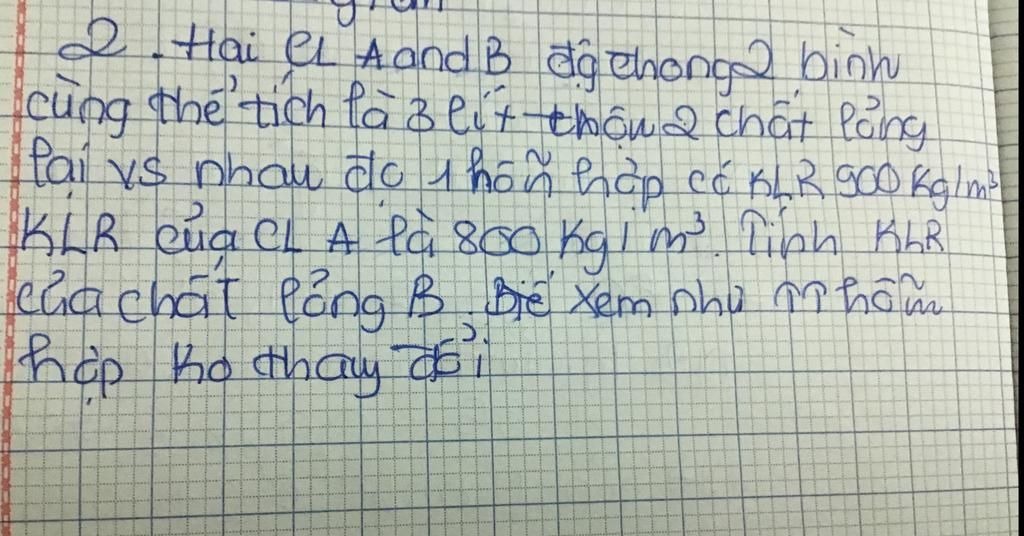 2. Hai CL A and B đg chong 2 bình
cùng thể tích là 3 lít trộn 2 chất lỏng
lại vs nhau đc 1 hỗn hợp có KLR 900 Kg/m³
KLR của CL A là 800 Kg/m³. Tính KLR
của chất lỏng B. xem như hỗn
hợp ko thay đổi